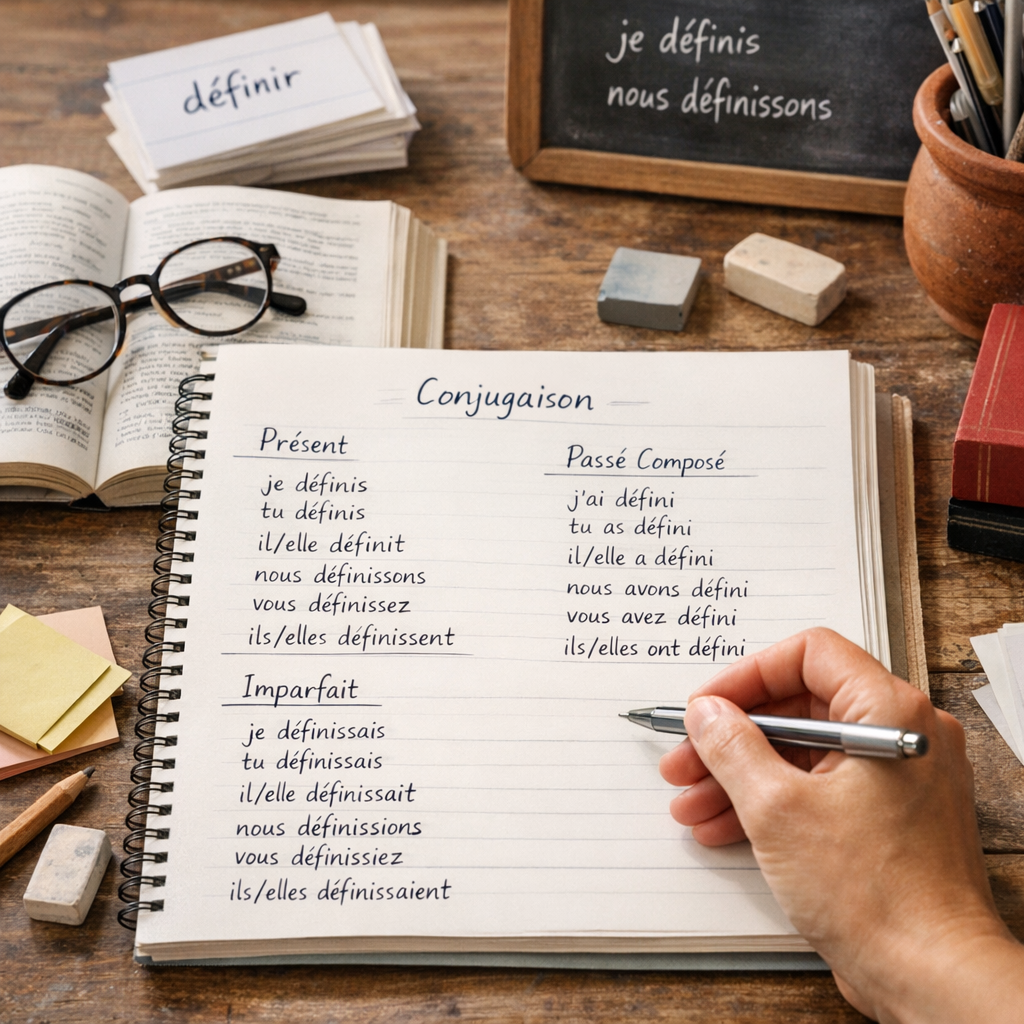 définir
je définis
nous définissons
Conjugaison
Présent
je définis
tu définis
il/elle définit
nous définissons
vous définissez
ils/elles définissent
Passé Composé
j'ai défini
tu as défini
il/elle a défini
nous avons défini
vous avez défini
ils/elles ont défini
Imparfait
je définissais
tu définissais
il/elle définissait
nous définissions
vous définissiez
ils/elles définissaient